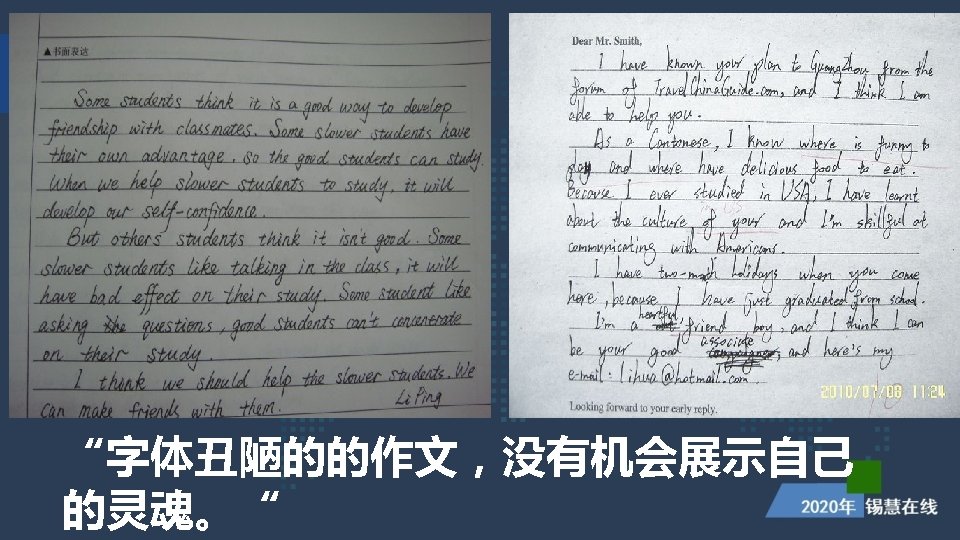 ▲书面表达
Some students think it is a good way to develop
friendship with classmates. Some slower students have
their own advantage. so the good students can study.
When we help slower students to study, it will
develop our self-confidence.
But others students think it isn't good. Some
slower students like talking in the class, it will
have bad effect on their study. Some student like
asking the questions, good students can't concentrate
on their study.
I think we should help the slower students. We
can make friends with them.
Li Ping
Dear Mr. Smith,
I have known your plan to Guangzhou from the
forum of TravelChinaGuide.com, and I think I am
able to help you.
As a Cantonese, I know where is funny to
play and where have delicious food to eat.
Because I ever studied in USA, I have learnt
about the culture of your and I'm skillful at
communicating with Americans.
I have two-month holidays when you come
here, because I have just graduated from school.
I'm a heartful friend boy, and I think I can
be your good associate, and here's my
e-mail: lihua@hotmail.com.
2010/07/08 11:24
Looking forward to your early reply.
“字体丑陋的的作文，没有机会展示自己
的灵魂。“
2020年 锡慧在线